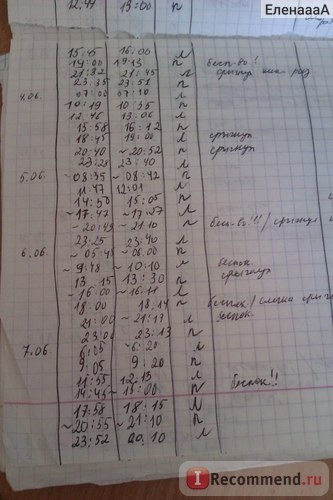 ЕленаааА
12.44 13:00 п
15:45 16:00 л
19:00 19:15 п бесп-во!
21:32 21:45 л срыгнул
23:35 23:51 п
4.06. 07:00 07:10 л
10:19 10:35 п
12:46 13:06 л
15:58 16:12 п
18:45 19:00 л срыгнул
20:40 ~20:52 п срыгнул
23:28 23:40 л
5.06. ~08:35 ~08:42 п
11:47 12:01 л
14:50 15:05 п
~17:47 ~17:57 л
~20:45 ~21:10 п бесп-во!!! / срыгнул
23:25 23:40 л
6.06. ~05:45 ~06:00 п
~9:48 ~10:10 л беспок. срыгнул
13:15 13:30 п
~16:00 ~16:11 л
18:00 18:14 п беспок /
21:00 ~21:17 л беспок.
23:00 23:13 п
7.06. 6:05 ~6:20 л
9:05 9:20 п
11:55 12:13 л
14:45 ~15:00 п беспок!!
17:58 18:15 л
~20:55 ~21:10 п
23:52 00.10 л
I Recommend.ru